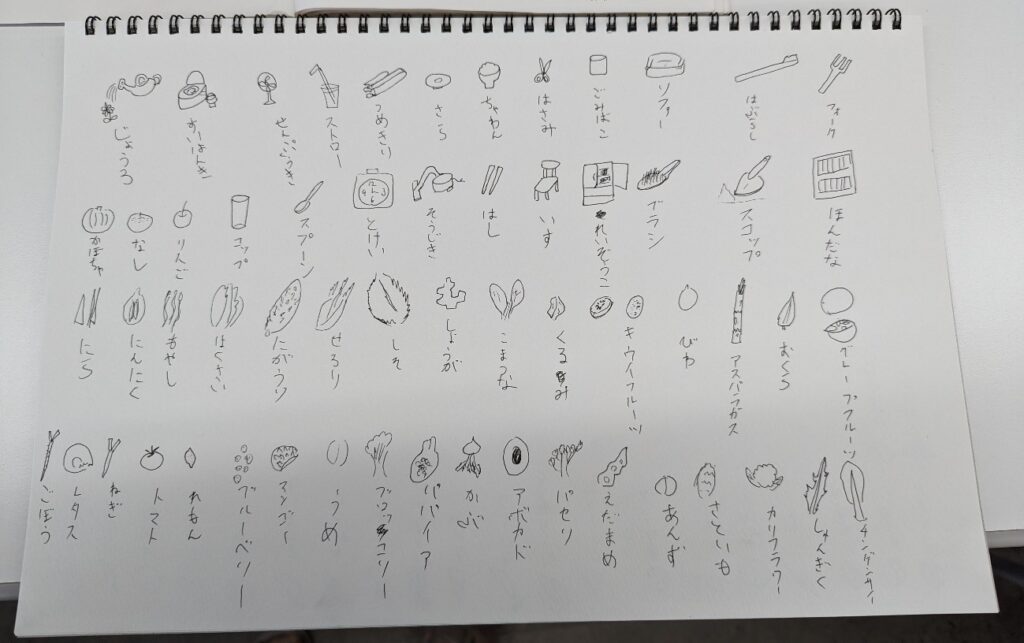 フォーク
はぶらし
ソファー
ごみばこ
はさみ
ちゃわん
さら
つめきり
ストロー
せんぷうき
すいはんき
じょうろ
ほんだな
スコップ
ブラシ
れいぞうこ
いす
はし
そうじき
とけい
スプーン
コップ
りんご
なし
かぼちゃ
グレープフルーツ
おくら
アスパラガス
びわ
キウイフルーツ
くるみ
こまつな
しょうが
しそ
せろり
にがうり
はくさい
もやし
にんにく
にら
チンゲンサイ
しゅんぎく
カリフラワー
さといも
あんず
えだまめ
パセリ
アボカド
かぶ
パパイア
ブロッコリー
うめ
マンゴー
ブルーベリー
れもん
トマト
ねぎ
レタス
ごぼう